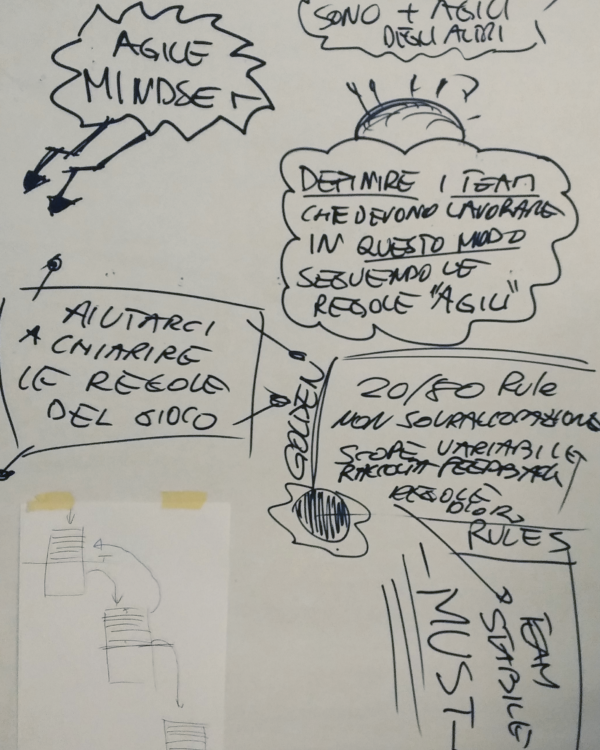 AGILE
MINDSET
SONO + AGILI
DEGLI ALTRI
DEFINIRE I TEAM
CHE DEVONO LAVORARE
IN QUESTO MODO
SEGUENDO LE
REGOLE "AGILI"
AIUTARCI
A CHIARIRE
LE REGOLE
DEL GIOCO
GOLDEN
20/80 Rule
NON SOVRALLOCAZIONE
SCOPE VARIABILE
RACCOLTA FEEDBACK
REGOLE
D'ORO
RULES
- MUST -
TEAM
STABILE